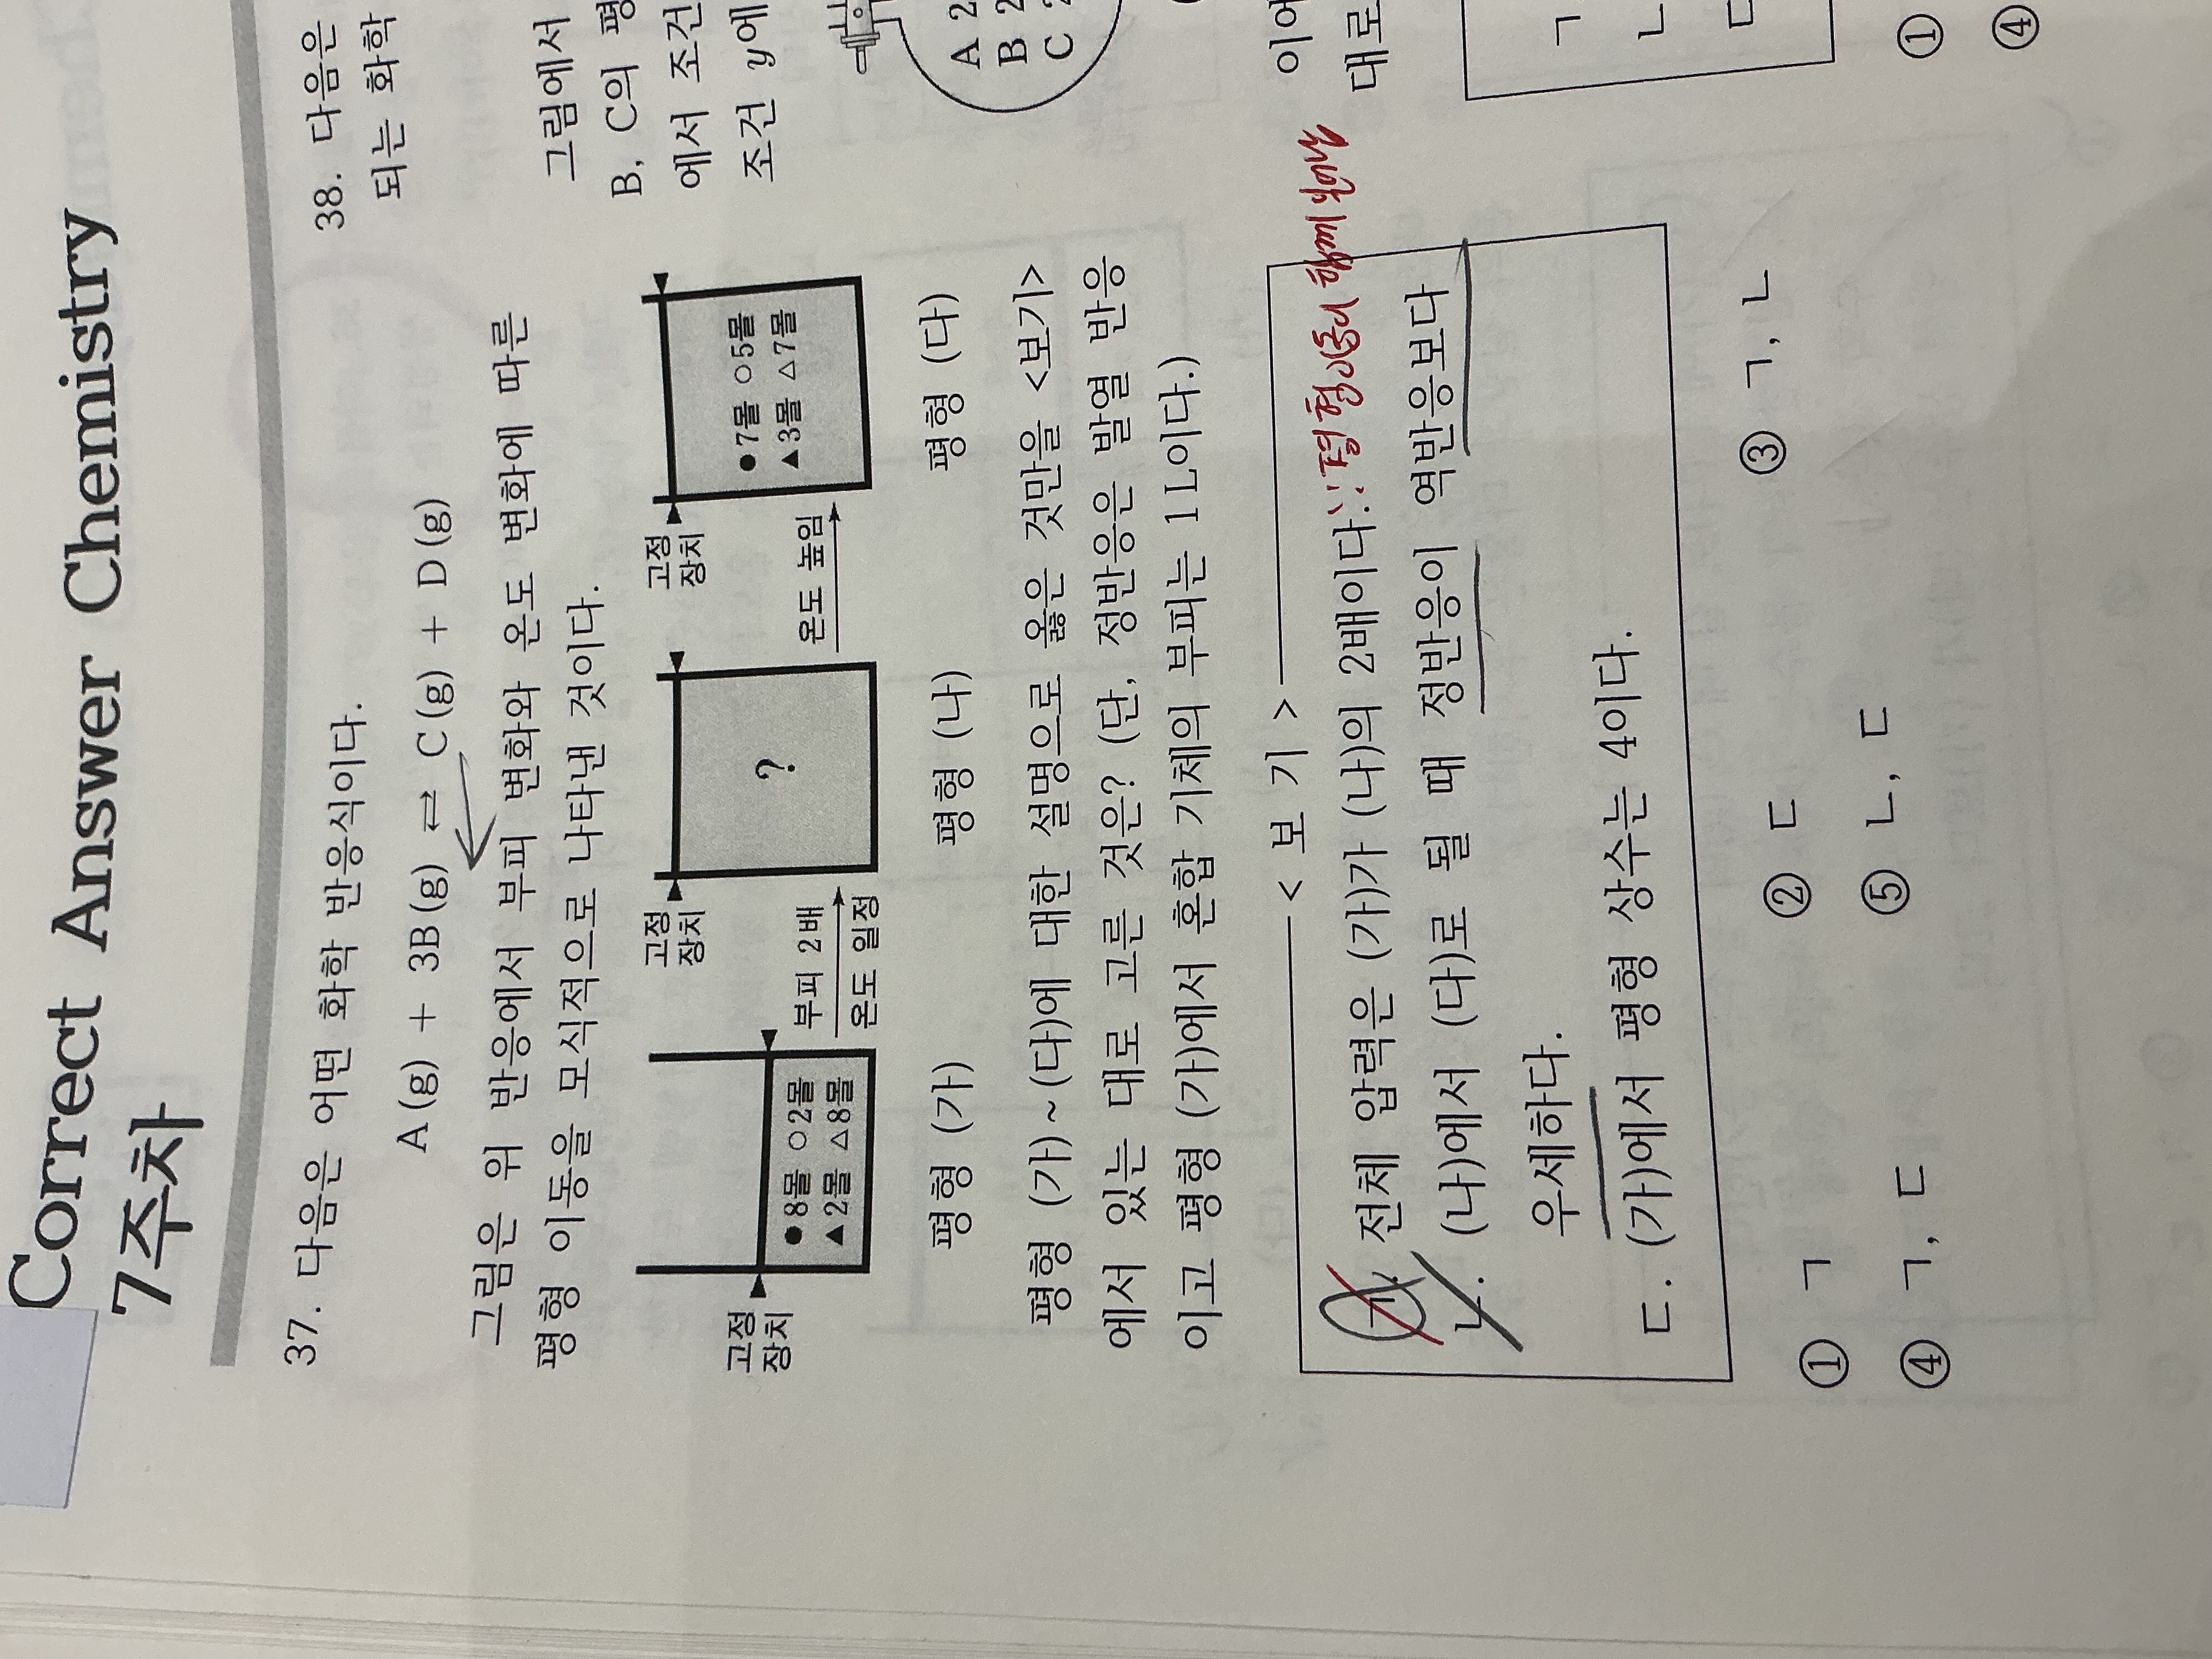 Correct Answer Chemistry
7주차
37. 다음은 어떤 화학 반응식이다.
A(g) + 3B(g) ⇌ C(g) + D(g)
그림은 위 반응에서 부피 변화와 온도 변화에 따른
평형 이동을 모식적으로 나타낸 것이다.
고정
장치
●8몰 ○2몰
▲2몰 △8몰
부피 2배
온도 일정
고정
장치
?
온도 높임
고정
장치
●7몰 ○5몰
▲3몰 △7몰
평형 (가)
평형 (나)
평형 (다)
평형 (가)~(다)에 대한 설명으로 옳은 것만을 <보기>
에서 있는 대로 고른 것은? (단, 정반응은 발열 반응
이고 평형 (가)에서 혼합 기체의 부피는 1L이다.)
< 보 기 >
ㄱ. 전체 압력은 (가)가 (나)의 2배이다. ∵평형이동이
ㄴ. (나)에서 (다)로 될 때 정반응이 역반응보다
우세하다.
ㄷ. (가)에서 평형 상수는 4이다.
① ㄱ
② ㄷ
③ ㄱ, ㄴ
④ ㄱ, ㄷ
⑤ ㄴ, ㄷ
38. 다음은
되는 화학
그림에서
B, C의 평
에서 조건
조건 y에
A 2
B 2
C 2
이에
대로
ㄱ
ㄴ
ㄷ
①
④